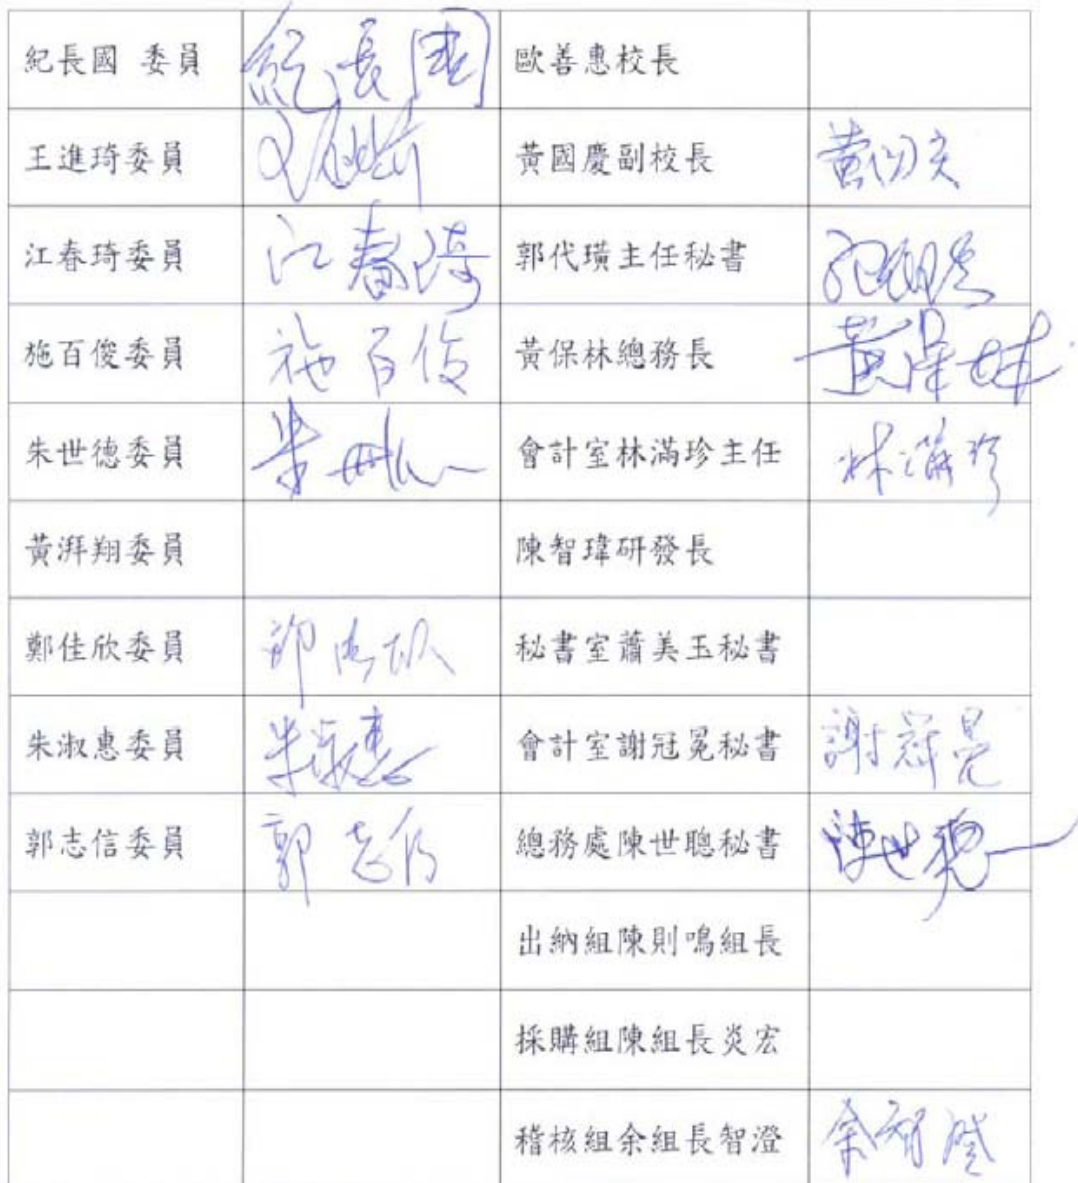 紀長國 委員 紀長國 歐善惠校長
王進琦委員 黃國慶副校長
江春琦委員 江春琦 郭代璜主任秘書
施百俊委員 施百俊 黃保林總務長 黃保林
朱世德委員 朱世德 會計室林滿珍主任 林滿珍
黃湃翔委員 陳智瑋研發長
鄭佳欣委員 秘書室蕭美玉秘書
朱淑惠委員 朱淑惠 會計室謝冠冕秘書 謝冠冕
郭志信委員 郭志信 總務處陳世聰秘書 陳世聰
出納組陳則鳴組長
採購組陳組長炎宏
稽核組余組長智澄 余智澄